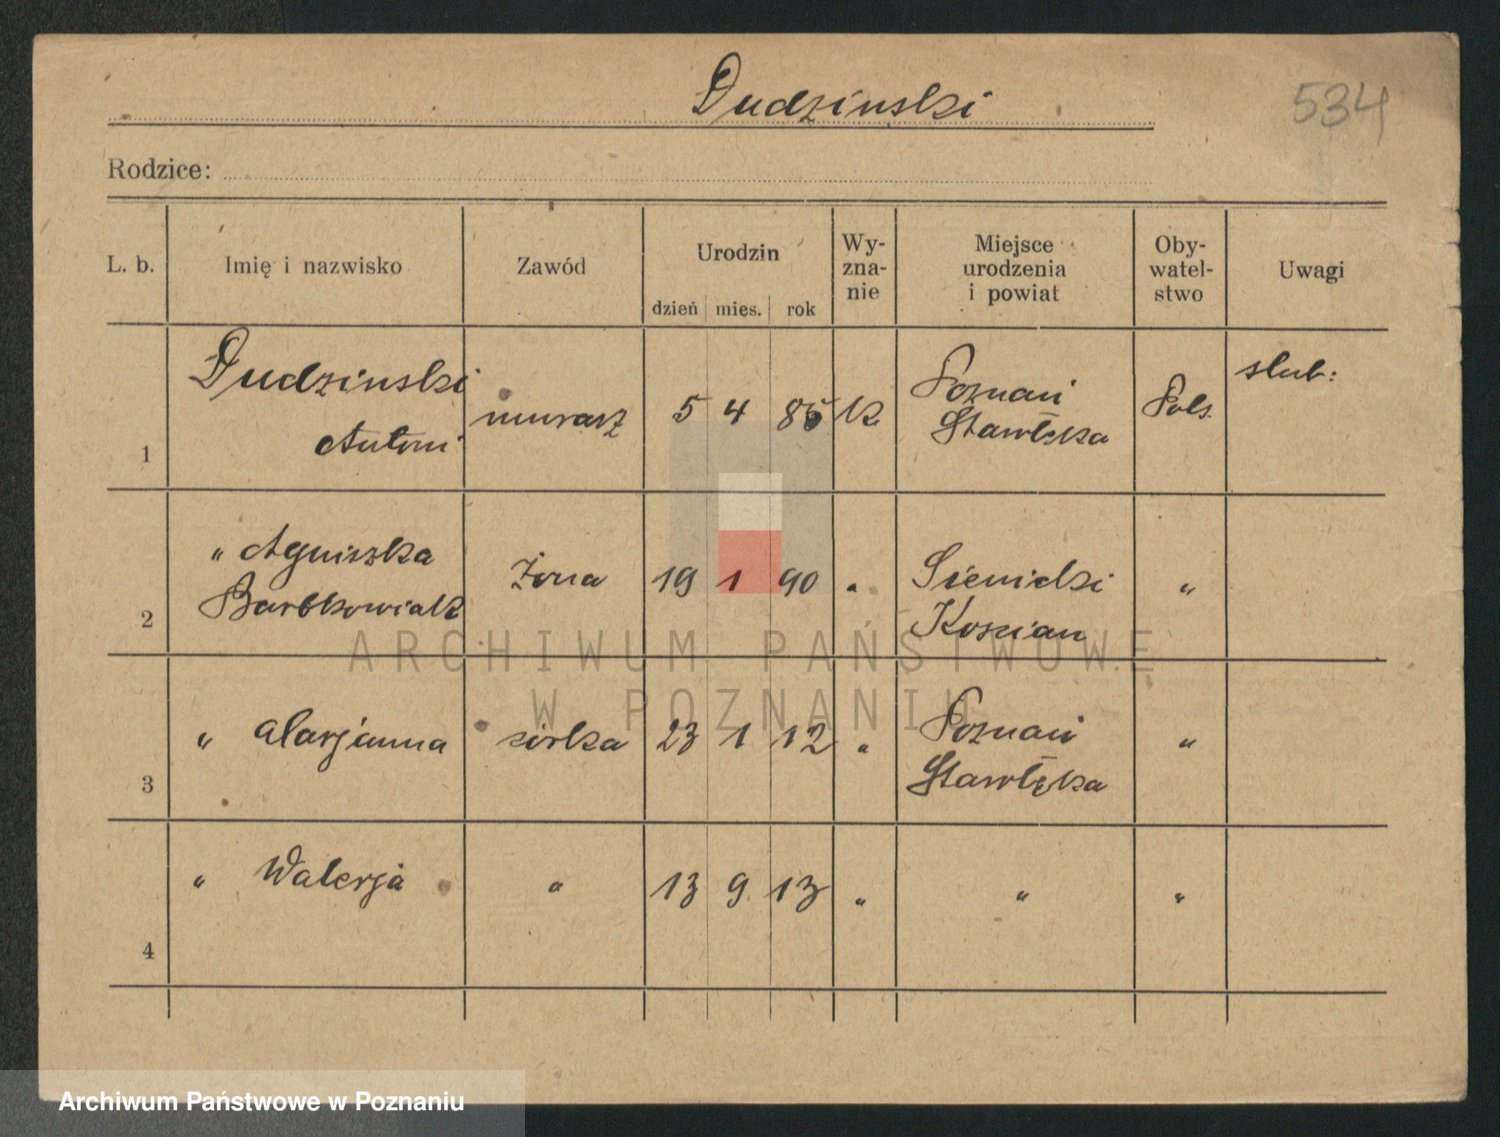 Dudzinski
534
Rodzice:
L. b. Imię i nazwisko Zawód Urodzin dzień mies. rok Wy-zna-nie Miejsce urodzenia i powiat Oby-watel-stwo Uwagi
1 Dudzinski Antoni murarz 5 4 85 k. Poznań Starołęka Pols. slub:
2 " Agniszka Bartkowiak żona 19 1 90 " Koscian "
3 " Marjanna córka 23 1 12 " Poznań Starołęka "
4 " Walerja " 13 9 13 " " "
ARCHIWUM PAŃSTWOWE
W POZNANIU
Archiwum Państwowe w Poznaniu